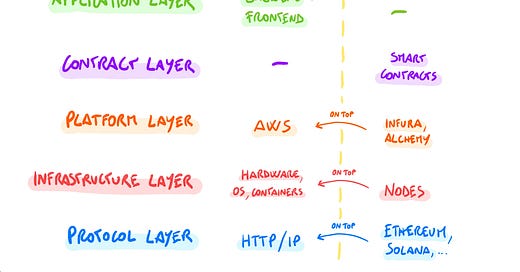 APPLICATION LAYER
FRONTEND
—
CONTRACT LAYER
—
SMART
CONTRACTS
PLATFORM LAYER
AWS
ON TOP
INFURA,
ALCHEMY
INFRASTRUCTURE LAYER
HARDWARE,
OS, CONTAINERS
ON TOP
NODES
PROTOCOL LAYER
HTTP/IP
ON TOP
ETHEREUM,
SOLANA,...